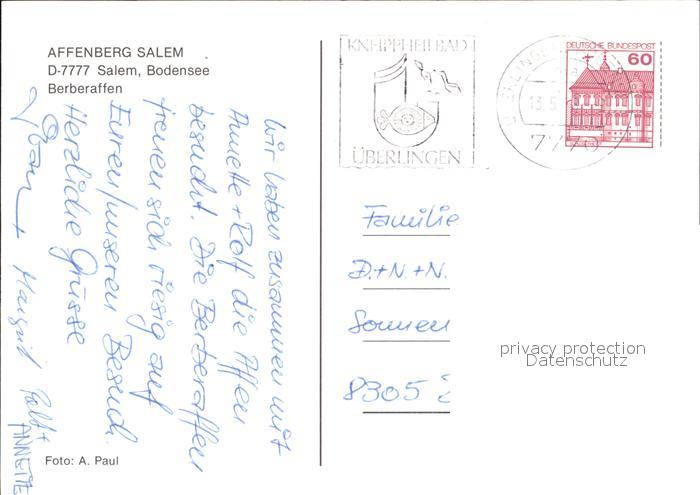 AFFENBERG SALEM
D-7777 Salem, Bodensee
Berberaffen
Wir haben zusammen mit
Annette + Rolf die Affen
besucht. Die Berberaffen
freuen sich riesig auf
Euren/unseren Besuch.
Herzliche Grüsse
+ Margrid Rolf +
ANNETTE
Foto: A. Paul
KNEIPPHEILBAD
ÜBERLINGEN
DEUTSCHE BUNDESPOST
60
ÜBERLINGEN
13.5
7770
Familie
D.+N.+N.
Sonnen
8305 2
privacy protection
Datenschutz